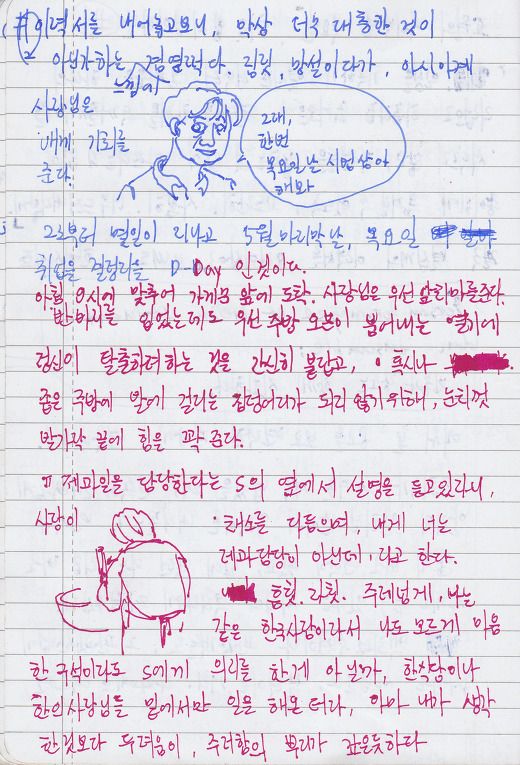 이력서를 내어놓고보니, 막상 더욱 대통한 것이
아닌가하는 겸연쩍다. 림릿, 망설이다가, 아시아계
느낌에
사장님은
내게 기회를
준다.
그대,
한번
목요일날 시험삼아
해봐
그로부터 몇일이 지나고 5월 마지막날, 목요일
취업을 결정지을 D-Day 인것이다.
아침 9시에 맞추어 가게문 앞에 도착. 사장님은 우선 앞치마를준다.
반바지를 입었는데도 우선 주방 오븐이 뿜어내는 열기에
정신이 탈출하려하는 것을 간신히 붙잡고, 혹시나
좁은 주방에 발에 걸리는 짐덩어리가 되지 않기위해, 눈치껏
발가락 끝에 힘을 꽉 준다.
제과일을 담당한다는 S의 옆에서 설명을 듣고있자니,
사장이
채소를 다듬으며, 내게 너는
제과담당이 아닌데, 라고 한다.
흠칫. 주제넘게, 나는
같은 한국사람이라서 나도 모르게 마음
한 구석이라도 S에게 의지를 한게 아닐까, 한식당이나
한인사장님들 밑에서만 일을 해온 터라, 아마 내가 생각
한것보다 두려움이, 주저함의 뿌리가 깊은듯하다